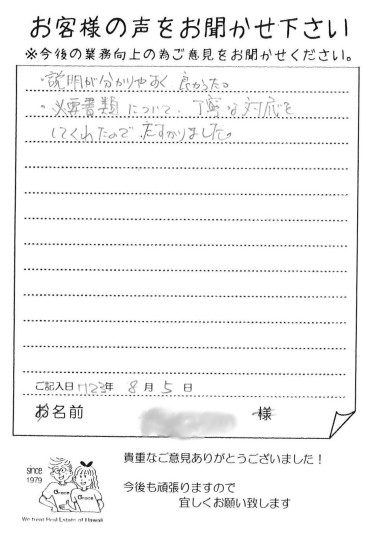 お客様の声をお聞かせ下さい
※今後の業務向上の為ご意見をお聞かせください。
・説明が分かりやすく良かった。
・必要書類について、丁寧な対応を
してくれたので、たすかりました。
ご記入日 H23年 8月 5日
お名前 様
since
1979
貴重なご意見ありがとうございました!
今後も頑張りますので
宜しくお願い致します
We treat Real Estate of Hawaii